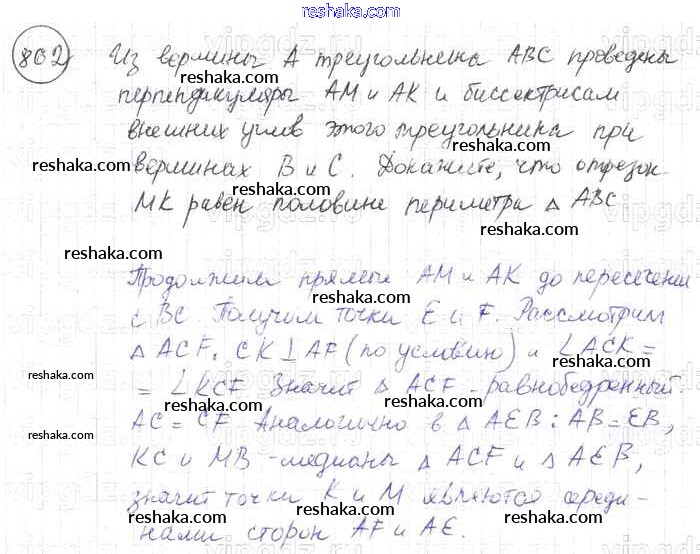 reshaka.com
802) Из вершины А треугольника АВС проведены
reshaka.com
перпендикуляры АМ и АК к биссектрисам
reshaka.com
внешних углов этого треугольника при
reshaka.com
вершинах В и С. Докажите, что отрезок
reshaka.com
МК равен половине периметра △ АВС
reshaka.com
reshaka.com
Продолжим прямые АМ и АК до пересечении
reshaka.com
с ВС. Получим точки Е и F. Рассмотрим
△ ACF. CK ⊥ AF (по условию) и ∠ACK =
reshaka.com
= ∠KCF. Значит △ ACF - равнобедренный.
reshaka.com
AC = CF. Аналогично в △ AEB: AB = EB,
reshaka.com
reshaka.com
KC и MB - медианы △ ACF и △ AEB,
reshaka.com
значит точки К и М являются середи-
reshaka.com
reshaka.com
нами сторон AF и AE.